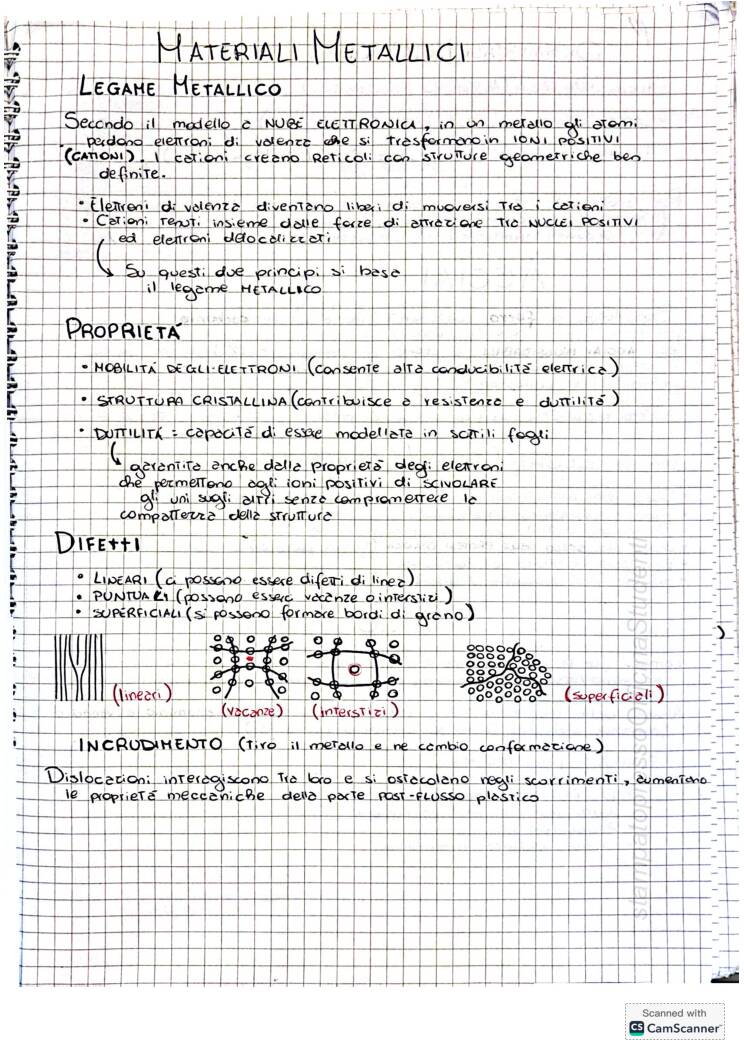 MATERIALI METALLICI
LEGAME METALLICO
Secondo il modello a NUBE ELETTRONICA, in un metallo gli atomi
perdono elettroni di valenza che si trasformano in IONI POSITIVI
(CATIONI). I cationi creano Reticoli con strutture geometriche ben
definite.
• Elettroni di valenza diventano liberi di muoversi tra i cationi
• Cationi tenuti insieme dalle forze di attrazione tra NUCLEI POSITIVI
ed elettroni delocalizzati
Su questi due principi si basa
il legame METALLICO
PROPRIETÀ
• MOBILITÀ DEGLI ELETTRONI (consente alta conducibilità elettrica)
• STRUTTURA CRISTALLINA (contribuisce a resistenza e duttilità)
• DUTTILITÀ = capacità di essere modellata in sottili fogli
garantita anche dalla proprietà degli elettroni
che permettono agli ioni positivi di SCIVOLARE
gli uni sugli altri senza compromettere la
compattezza della struttura
DIFETTI
• LINEARI (ci possono essere difetti di linea)
• PUNTUALI (possono essere vacanze o interstizi)
• SUPERFICIALI (si possono formare bordi di grano)
(lineari)
(vacanze)
(interstizi)
(superficiali)
INCRUDIMENTO (tiro il metallo e ne cambio conformazione)
Dislocazioni interagiscono tra loro e si ostacolano negli scorrimenti, aumentano
le proprietà meccaniche della parte POST-FLUSSO plastico
stampatopressoOfficinaStudenti
Scanned with
CS CamScanner